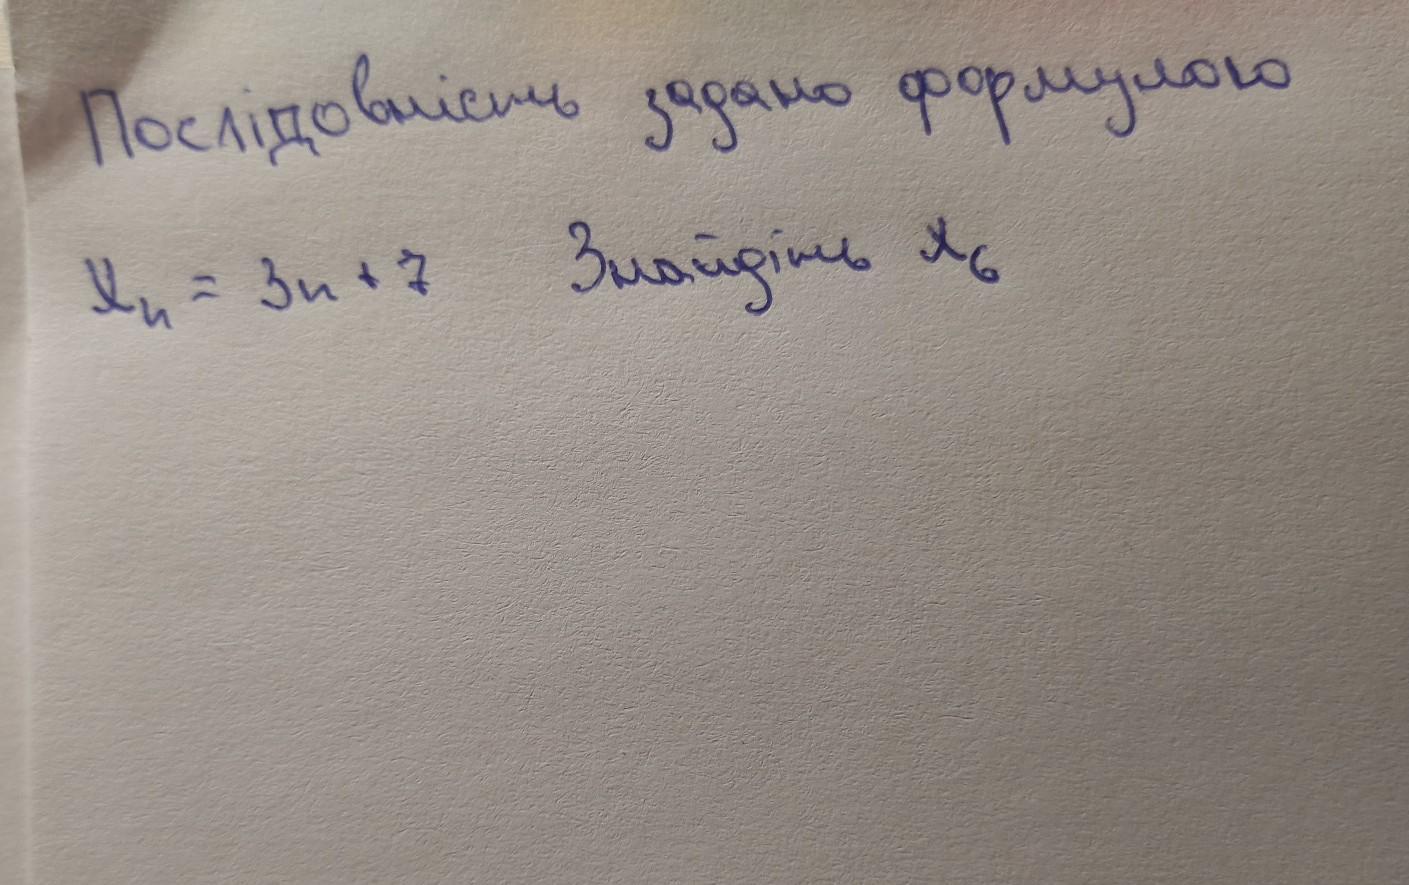 Послідовність задано формулою
xₙ = 3n + 7 Знайдіть x₆